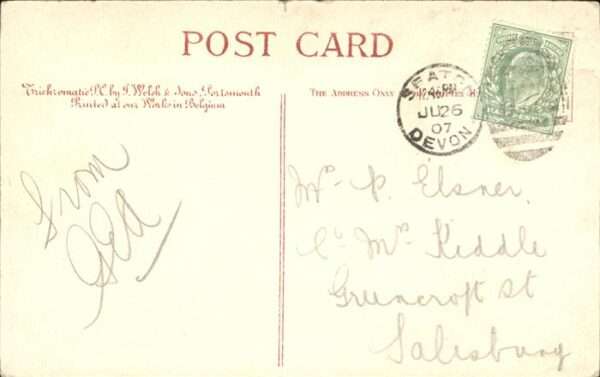 POST CARD
Trichromatic P.C. by F. Welch & Sons, Portsmouth
Printed at our Works in Belgium
THE ADDRESS ONLY
SEATON
JU 26
07
DEVON
From
Mrs P. Elsner
C/o Mrs Kiddle
Greencroft St
Salesburg